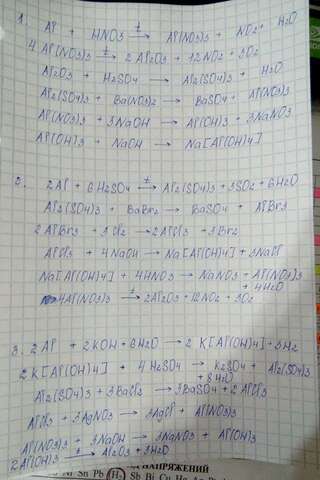 1. Al + HNO3 t→ Al(NO3)3 + NO2 + H2O
4 Al(NO3)3 t→ 2 Al2O3 + 12NO2 + 3O2
Al2O3 + H2SO4 → Al2(SO4)3 + H2O
Al2(SO4)3 + Ba(NO3)2 → BaSO4 + Al(NO3)3
Al(NO3)3 + 3NaOH → Al(OH)3 + 3NaNO3
Al(OH)3 + NaOH → Na[Al(OH)4]
2. 2Al + 6H2SO4 t→ Al2(SO4)3 + 3SO2 + 6H2O
Al2(SO4)3 + BaBr2 → BaSO4 + AlBr3
2AlBr3 + 3Cl2 → 2AlCl3 + 3Br2
AlCl3 + 4NaOH → Na[Al(OH)4] + 3NaCl
Na[Al(OH)4] + 4HNO3 → NaNO3 + Al(NO3)3
+ 4H2O
4Al(NO3)3 t→ 2Al2O3 + 12NO2 + 3O2
3. 2Al + 2KOH + 6H2O → 2 K[Al(OH)4] + 3H2
2K[Al(OH)4] + 4H2SO4 → K2SO4 + Al2(SO4)3
+ 8H2O
Al2(SO4)3 + 3BaCl2 → 3BaSO4 + 2AlCl3
AlCl3 + 3AgNO3 → 3AgCl + Al(NO3)3
Al(NO3)3 + 3NaOH → 3NaNO3 + Al(OH)3
2Al(OH)3 t→ Al2O3 + 3H2O
НАПРЯЖЕНИЙ
Ni Sn Pb (H2) Sb Bi Cu Hg Ag